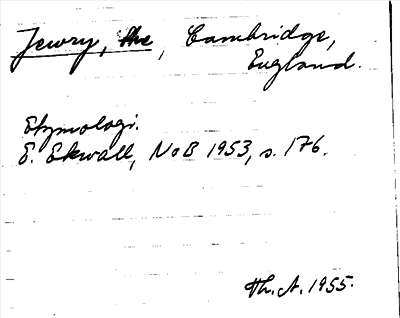 Jewry, the, Cambridge,
England.
Etymologi.
E. Ekwall, NoB 1953, s. 176.
Th. A. 1955.